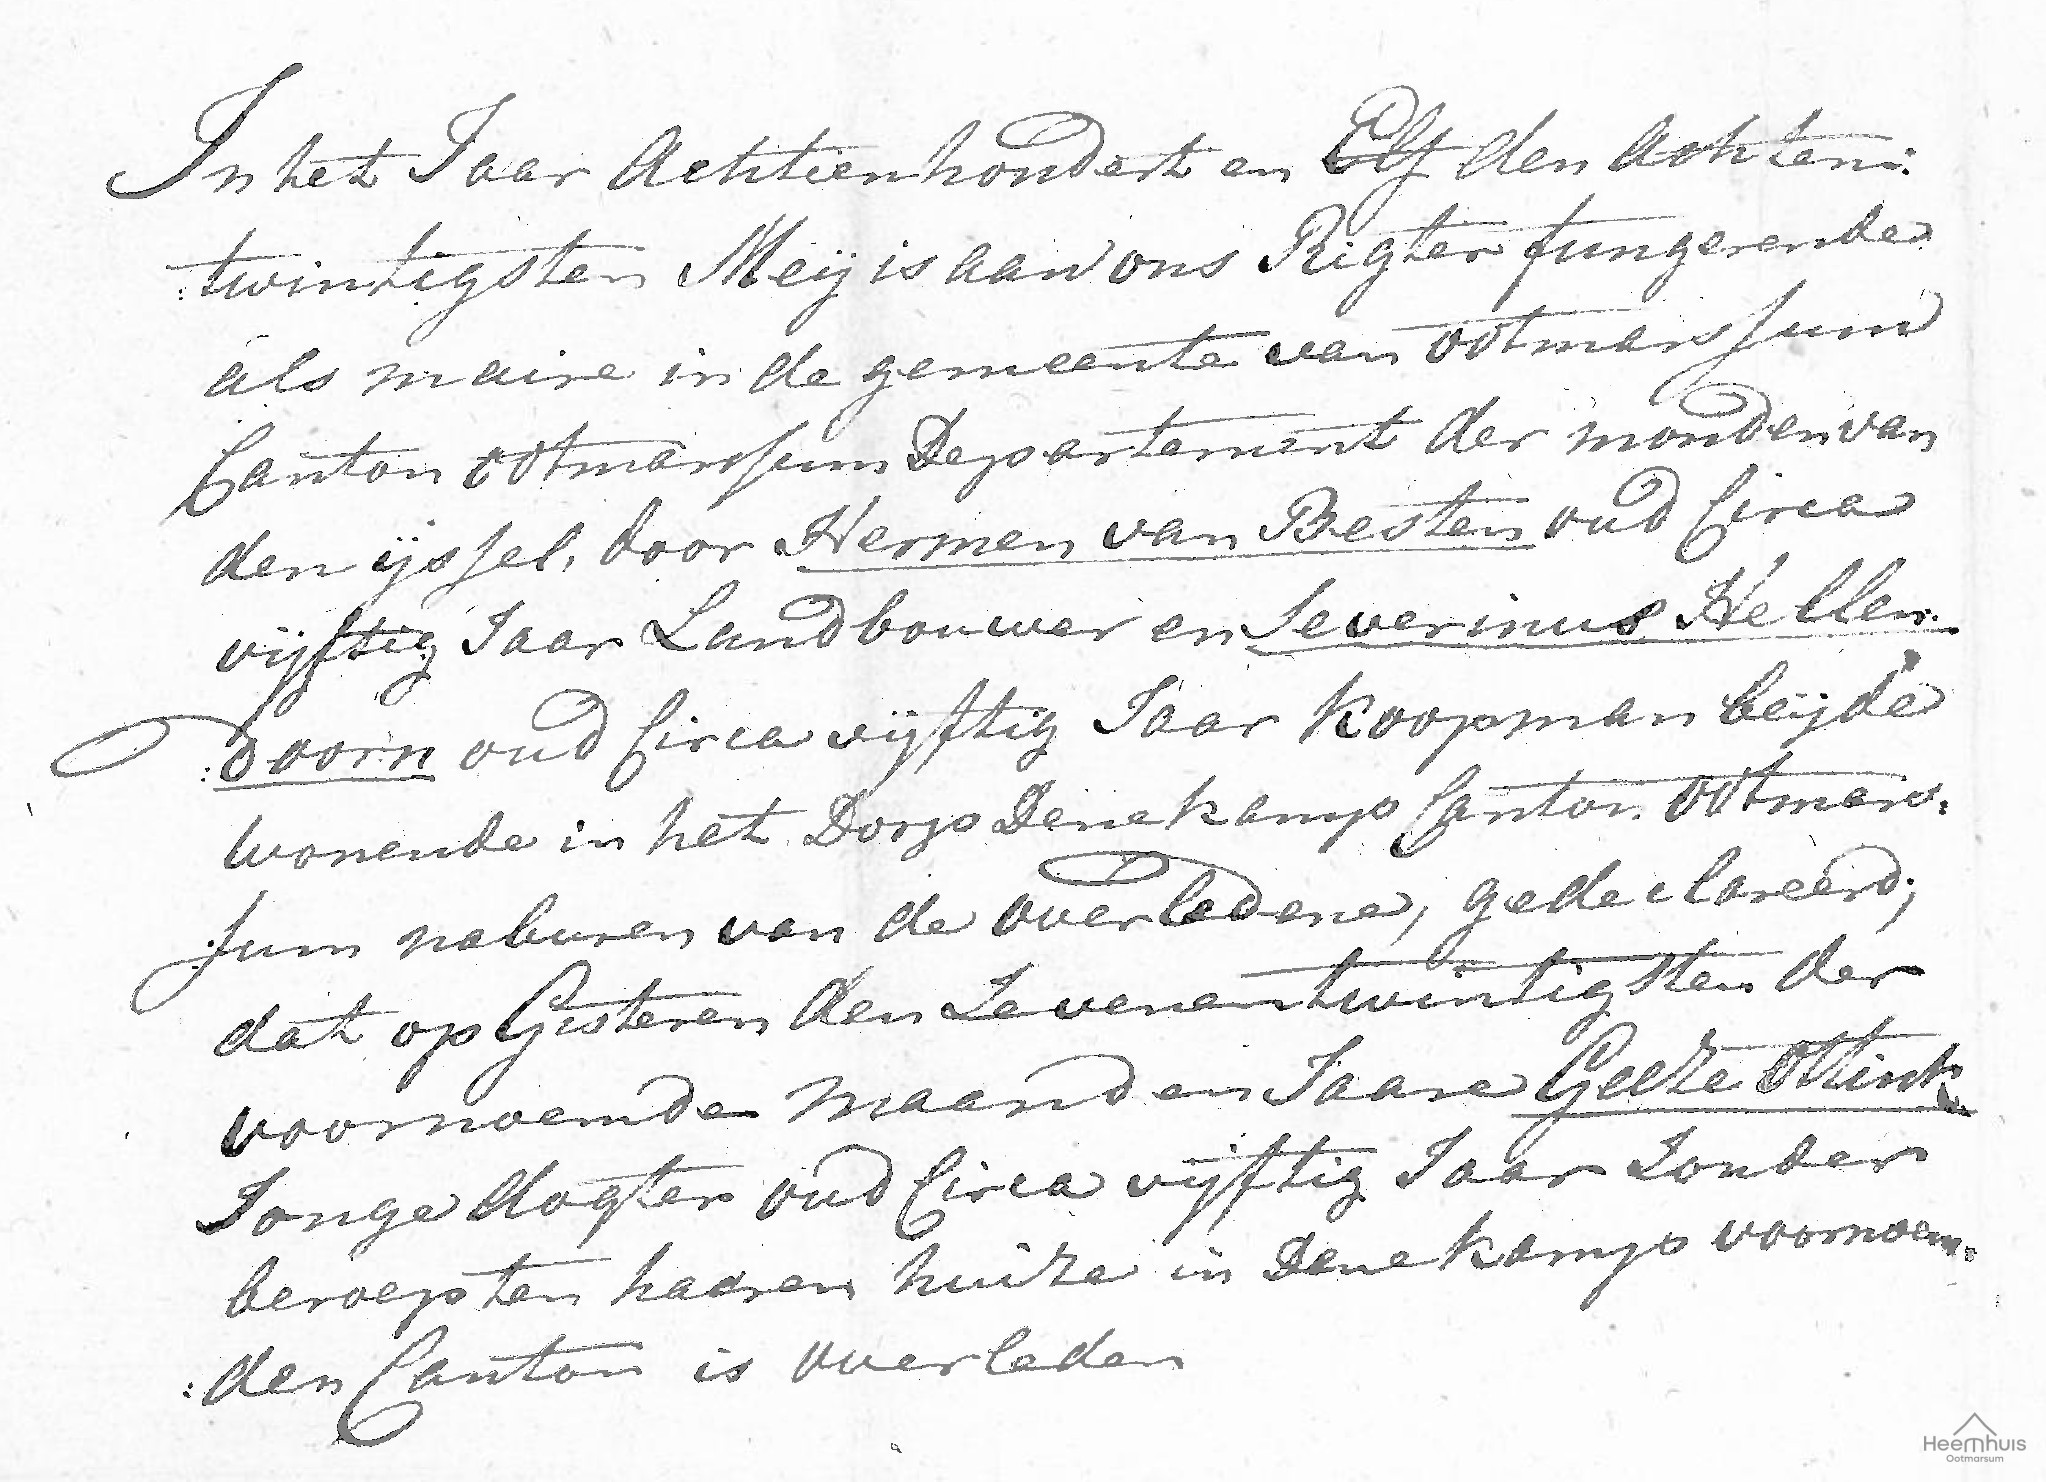 In het Jaar Achttienhondert en Elf den Achten:
:twintigsten Meij is aan ons Rigter fungerende
als maire in de gemeente van ootmarssum
Canton ootmarssum Departement der monden van
den ijssel, door Hermen van Besten oud Circa
vijftig Jaar Landbouwer en Severinus Hellen:
:doorn oud Circa vijftig Jaar Koopman beijde
wonende in het Dorp Denekamp Canton ootmars:
:sum naburen van de overledene, gedeclareerd;
dat op Gisteren den Zevenentwintigsten der
voornoemde maand en Jaare Geeze Ottink
Jonge dogter oud Circa vijftig Jaar Zonder
beroep ten haaren huize in Denekamp voornoem:
:den Canton is overleden
Heemhuis
Ootmarsum